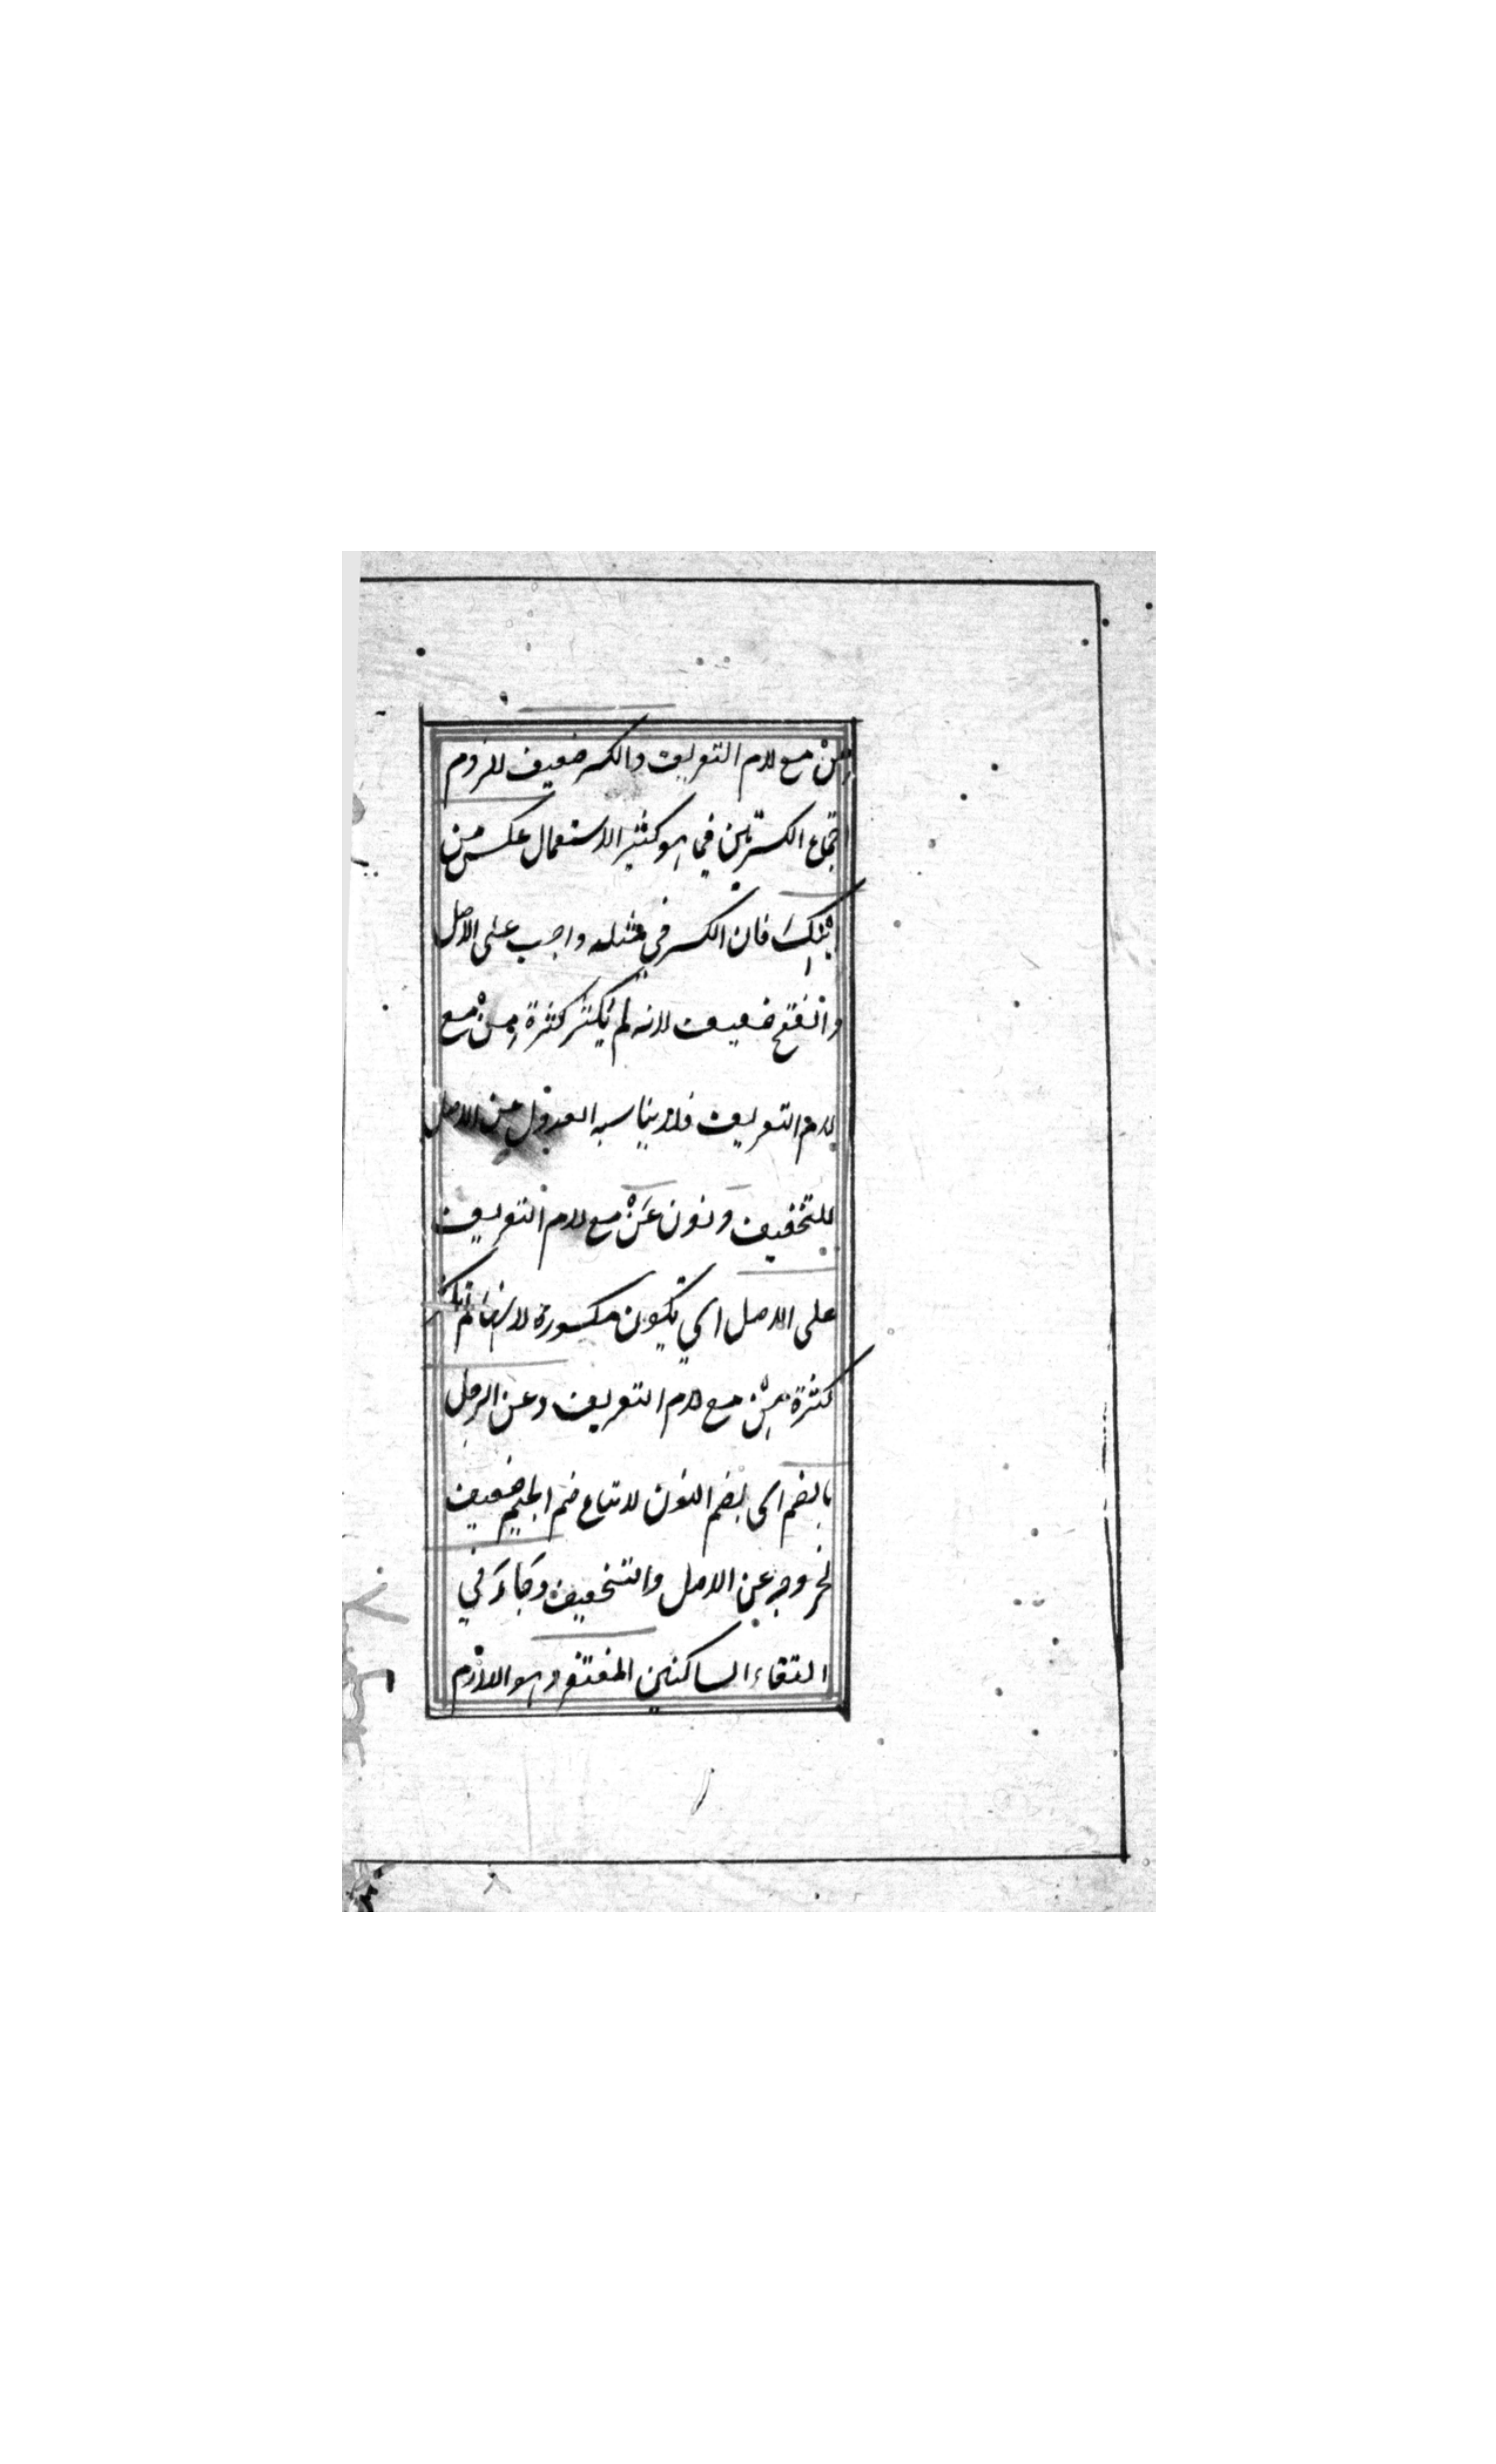 مِنْ مع لام التعريف والكسر ضعيف للزوم
جتماع الكسرتين فيما هو كثير الاستعمال عكس من
ابنك فان الكسر في مثله واجب على الاصل
والفتح ضعيف لانه لم يكثر كثرة مِنْ مع
لام التعريف فلا يناسبه العدول عن الاصل
للتخفيف ونون عَنْ مع لام التعريف
على الاصل اي تكون مكسورة لانها لم تكثر
كثرة مِنْ مع لام التعريف وعن الرجل
بالضم اي بضم النون لاتباع ضم الجيم ضعيف
لخروجه عن الاصل والتخفيف وجاء في
التقاء الساكنين المغتفر وهو اللازم